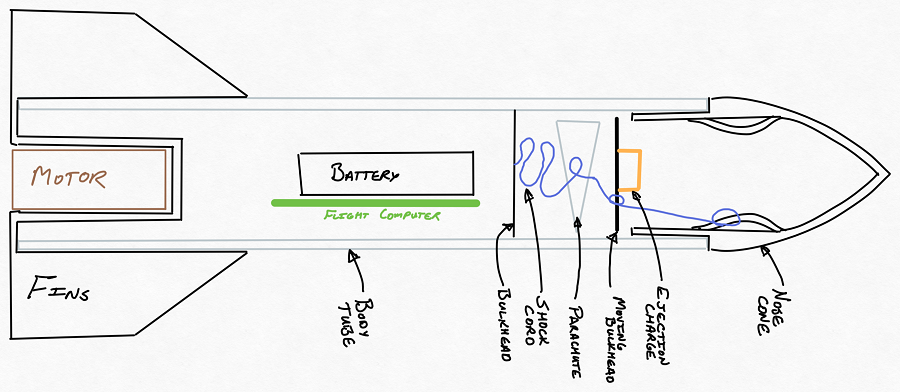 MOTOR
BATTERY
FLIGHT COMPUTER
FINS
BODY
TUBE
BULKHEAD
SHOCK
CORD
PARACHUTE
MOVING
BULKHEAD
EJECTION
CHARGE
NOSE
CONE